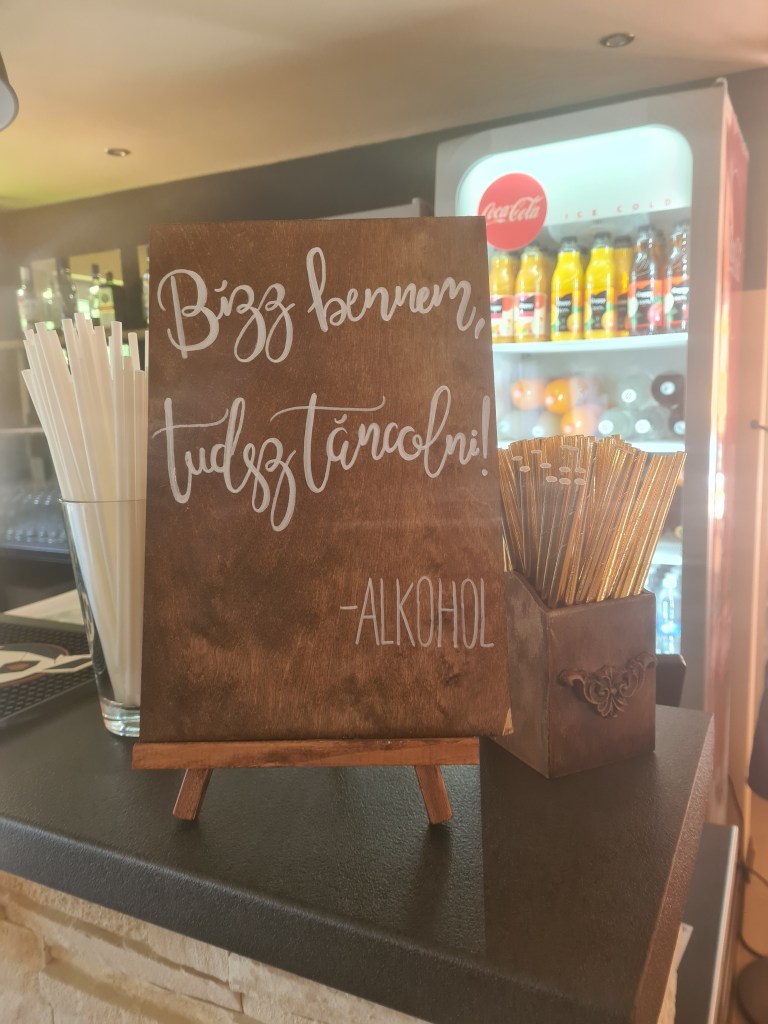 Coca-Cola
ICE COLD
Bízz bennem,
tudsz táncolni!
-ALKOHOL